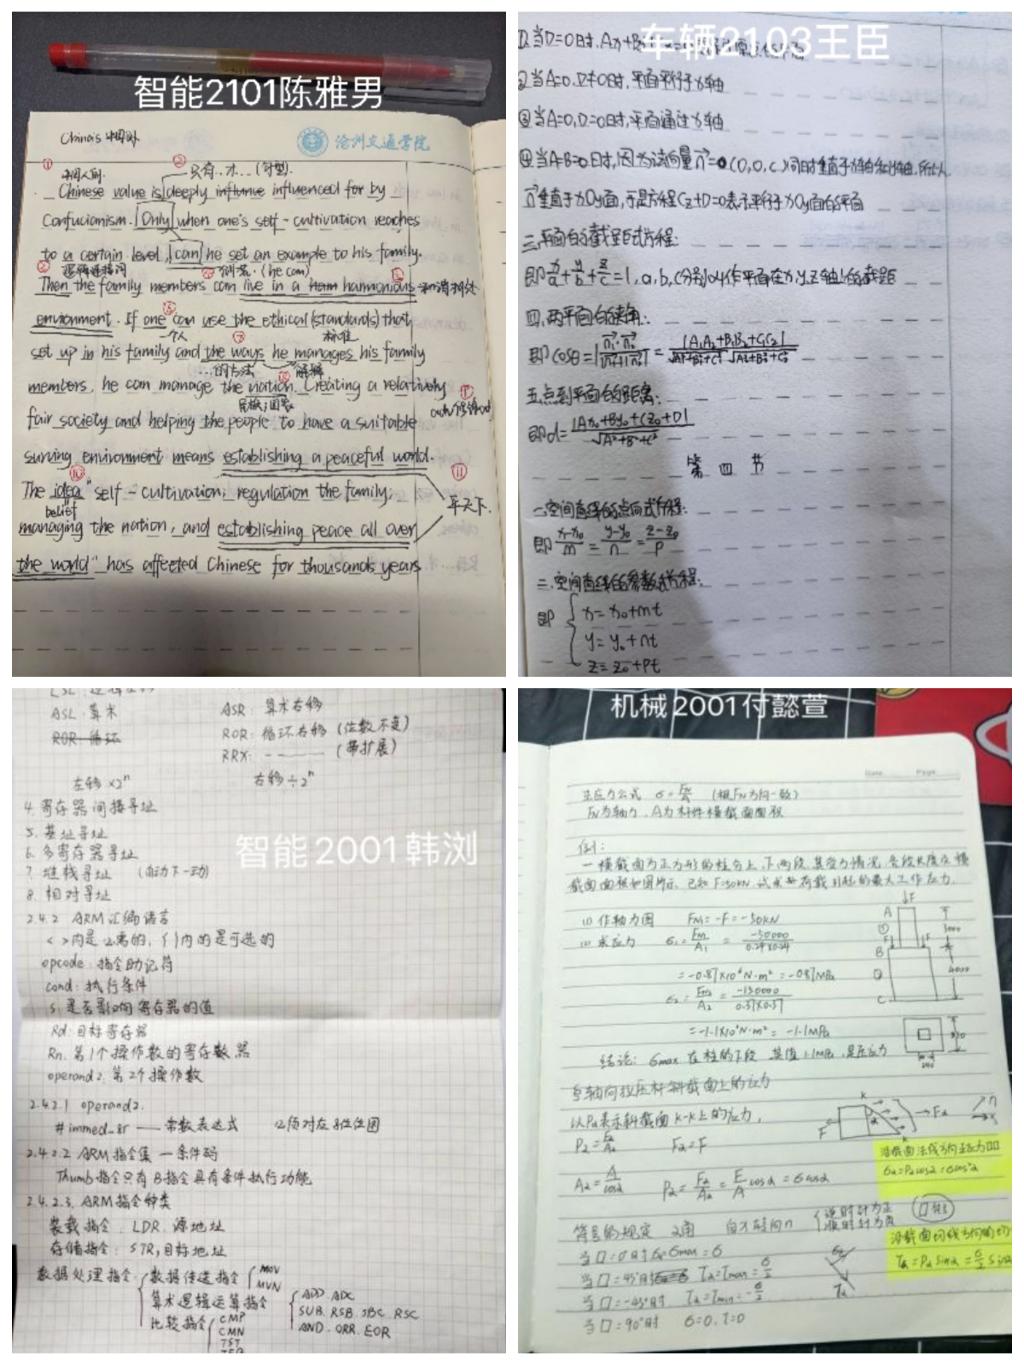 智能2101陈雅男
China's 中国外
沧州交通学院
只有..才...(句型)
中国人的
Chinese value is deeply influenced for by
Confucianism. Only when one's self-cultivation reaches
to a certain level, can he set an example to his family.
逻辑连接词
倒装.(he can)
Then the family members can live in a harmonious
environment. If one can use the ethical (standards) that
一个人
标准
set up in his family and the ways he manages his family
...的方法
members, he can manage the nation. Creating a relatively
民族;国家
fair society and helping the people to have a suitable
surving environment means establishing a peaceful world.
The idea "self-cultivation, regulation the family,
belief
平天下.
managing the nation, and establishing peace all over
the world" has affected Chinese for thousands years
车辆2103王臣
①当D=0时,
②当A=0,D≠0时,平面平行于x轴
③当A=0,D=0时,平面通过x轴
④当A=B=0时,因为法向量n=(0,0,c)同时垂直于x轴和y轴,所以
n垂直于xOy面,于是方程Cz+D=0表示平行于xOy面的平面
三.平面的截距式方程:
即x/a+y/b+z/c=1,a,b,c分别叫作平面在x,y,z轴上的截距
四.两平面的夹角:
即cosθ=|n₁·n₂|/|n₁||n₂|=|A₁A₂+B₁B₂+C₁C₂|/√A₁²+B₁²+C₁² √A₂²+B₂²+C₂²
五.点到平面的距离:
即d=|Ax₀+By₀+Cz₀+D|/√A²+B²+C²
第四节
一.空间直线的点向式方程:
即x-x₀/m=y-y₀/n=z-z₀/p
二.空间直线的参数式方程:
即 x=x₀+mt
y=y₀+nt
z=z₀+pt
ASL:算术 ASR:算术右移
ROR:循环 ROR:循环右移(位数不变)
RRX: (带扩展)
左移×2ⁿ 右移÷2ⁿ
4.寄存器间接寻址
5.基址寻址
6.多寄存器寻址
智能2001韩浏
7.堆栈寻址
8.相对寻址
2.4.2 ARM汇编语言
< >内是必需的,{ }内的是可选的
opcode:指令助记符
cond:执行条件
S:是否影响寄存器的值
Rd:目标寄存器
Rn:第1个操作数的寄存数器
operand2:第2个操作数
2.4.2.1 operand2.
#immed_8r —— 常数表达式 必须对应8位位图
2.4.2.2 ARM指令集—条件码
Thumb指令只有B指令具有条件执行功能
2.4.2.3. ARM指令种类
装载指令:LDR.源地址
存储指令:STR,目标地址
数据处理指令: 数据传送指令 MOV
MVN
算术逻辑运算指令 ADD.ADC
SUB.RSB.SBC.RSC
AND.ORR.EOR
比较指令 CMP
CMN
TST
机械2001付懿萱
Date Page
正应力公式 σ=FN/A
FN为轴力,A为杆件横截面面积
例:
一横截面为正方形的柱分上、下两段,其受力情况,各段长度及横
截面面积如图所示.已知F=50kN,试求荷载引起的最大工作应力.
(1)作轴力图 FN₁=-F=-50kN
(2)求应力 σ₁=FN₁/A₁=-50000/0.24×0.24
=-0.87×10⁶N·m²=-0.87MPa
σ₂=FN₂/A₂=-150000/0.37×0.37
=-1.1×10⁶N·m²=-1.1MPa
结论:σmax在柱的下段,其值1.1MPa,是压应力
F
A
B
C
3000
4000
240
与轴向拉压杆斜截面上的应力
以Pα表示斜截面k-k上的应力,
Pα=Fα/Aα Fα=F
Aα=A/cosα Pα=Fα/Aα=F/A cosα=σcosα
沿截面法线方向正应力
σα=Pαcosα=σcos²α
符号的规定 α角 自x转向n 逆时针为正
顺时针为负
沿截面切线方向的切
τα=Pαsinα=σ/2 sin2α
当□=0时 σmax=σ
当□=45°时 τα=τmax=σ/2
当□=-45°时 τα=τmin=-σ/2
当□=90°时 σ=0,τ=0